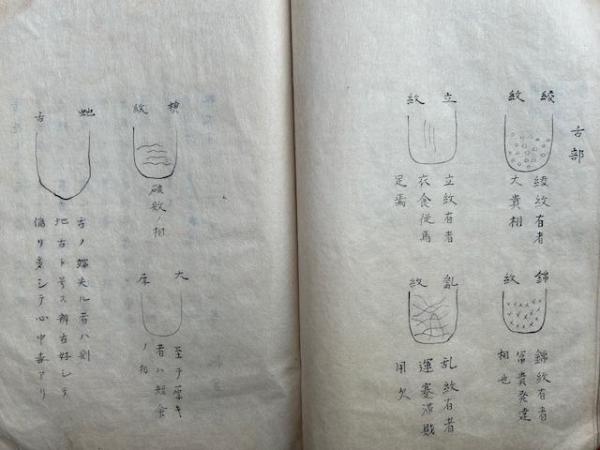 舌部
綾紋
綾紋有者
大貴相
錦紋
錦紋有者
富貴発達
相也
立紋
立紋有者
衣食従馬
足焉
亂紋
乱紋有者
運塞滞財
用欠
横紋
破敗ノ相
大厚
至テ厚キ
者ハ短食
ノ相
虵舌
舌ノ端尖ル者ハ則
虵舌ト号ス辨舌好シテ
偽リ多シテ心中毒アリ